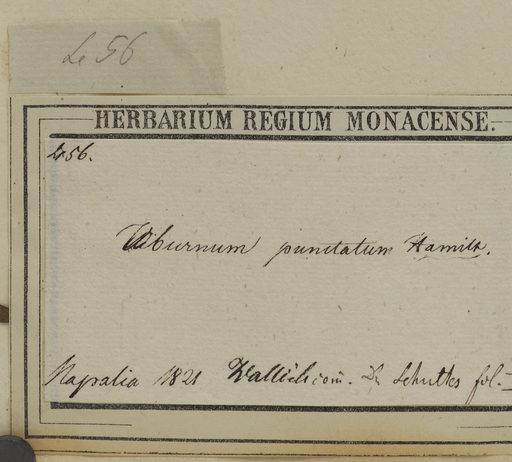 456
HERBARIUM REGIUM MONACENSE.
456.
Viburnum punctatum Hamilt.
Napalia 1821 Wallich com̄. Dr Schultes fil.